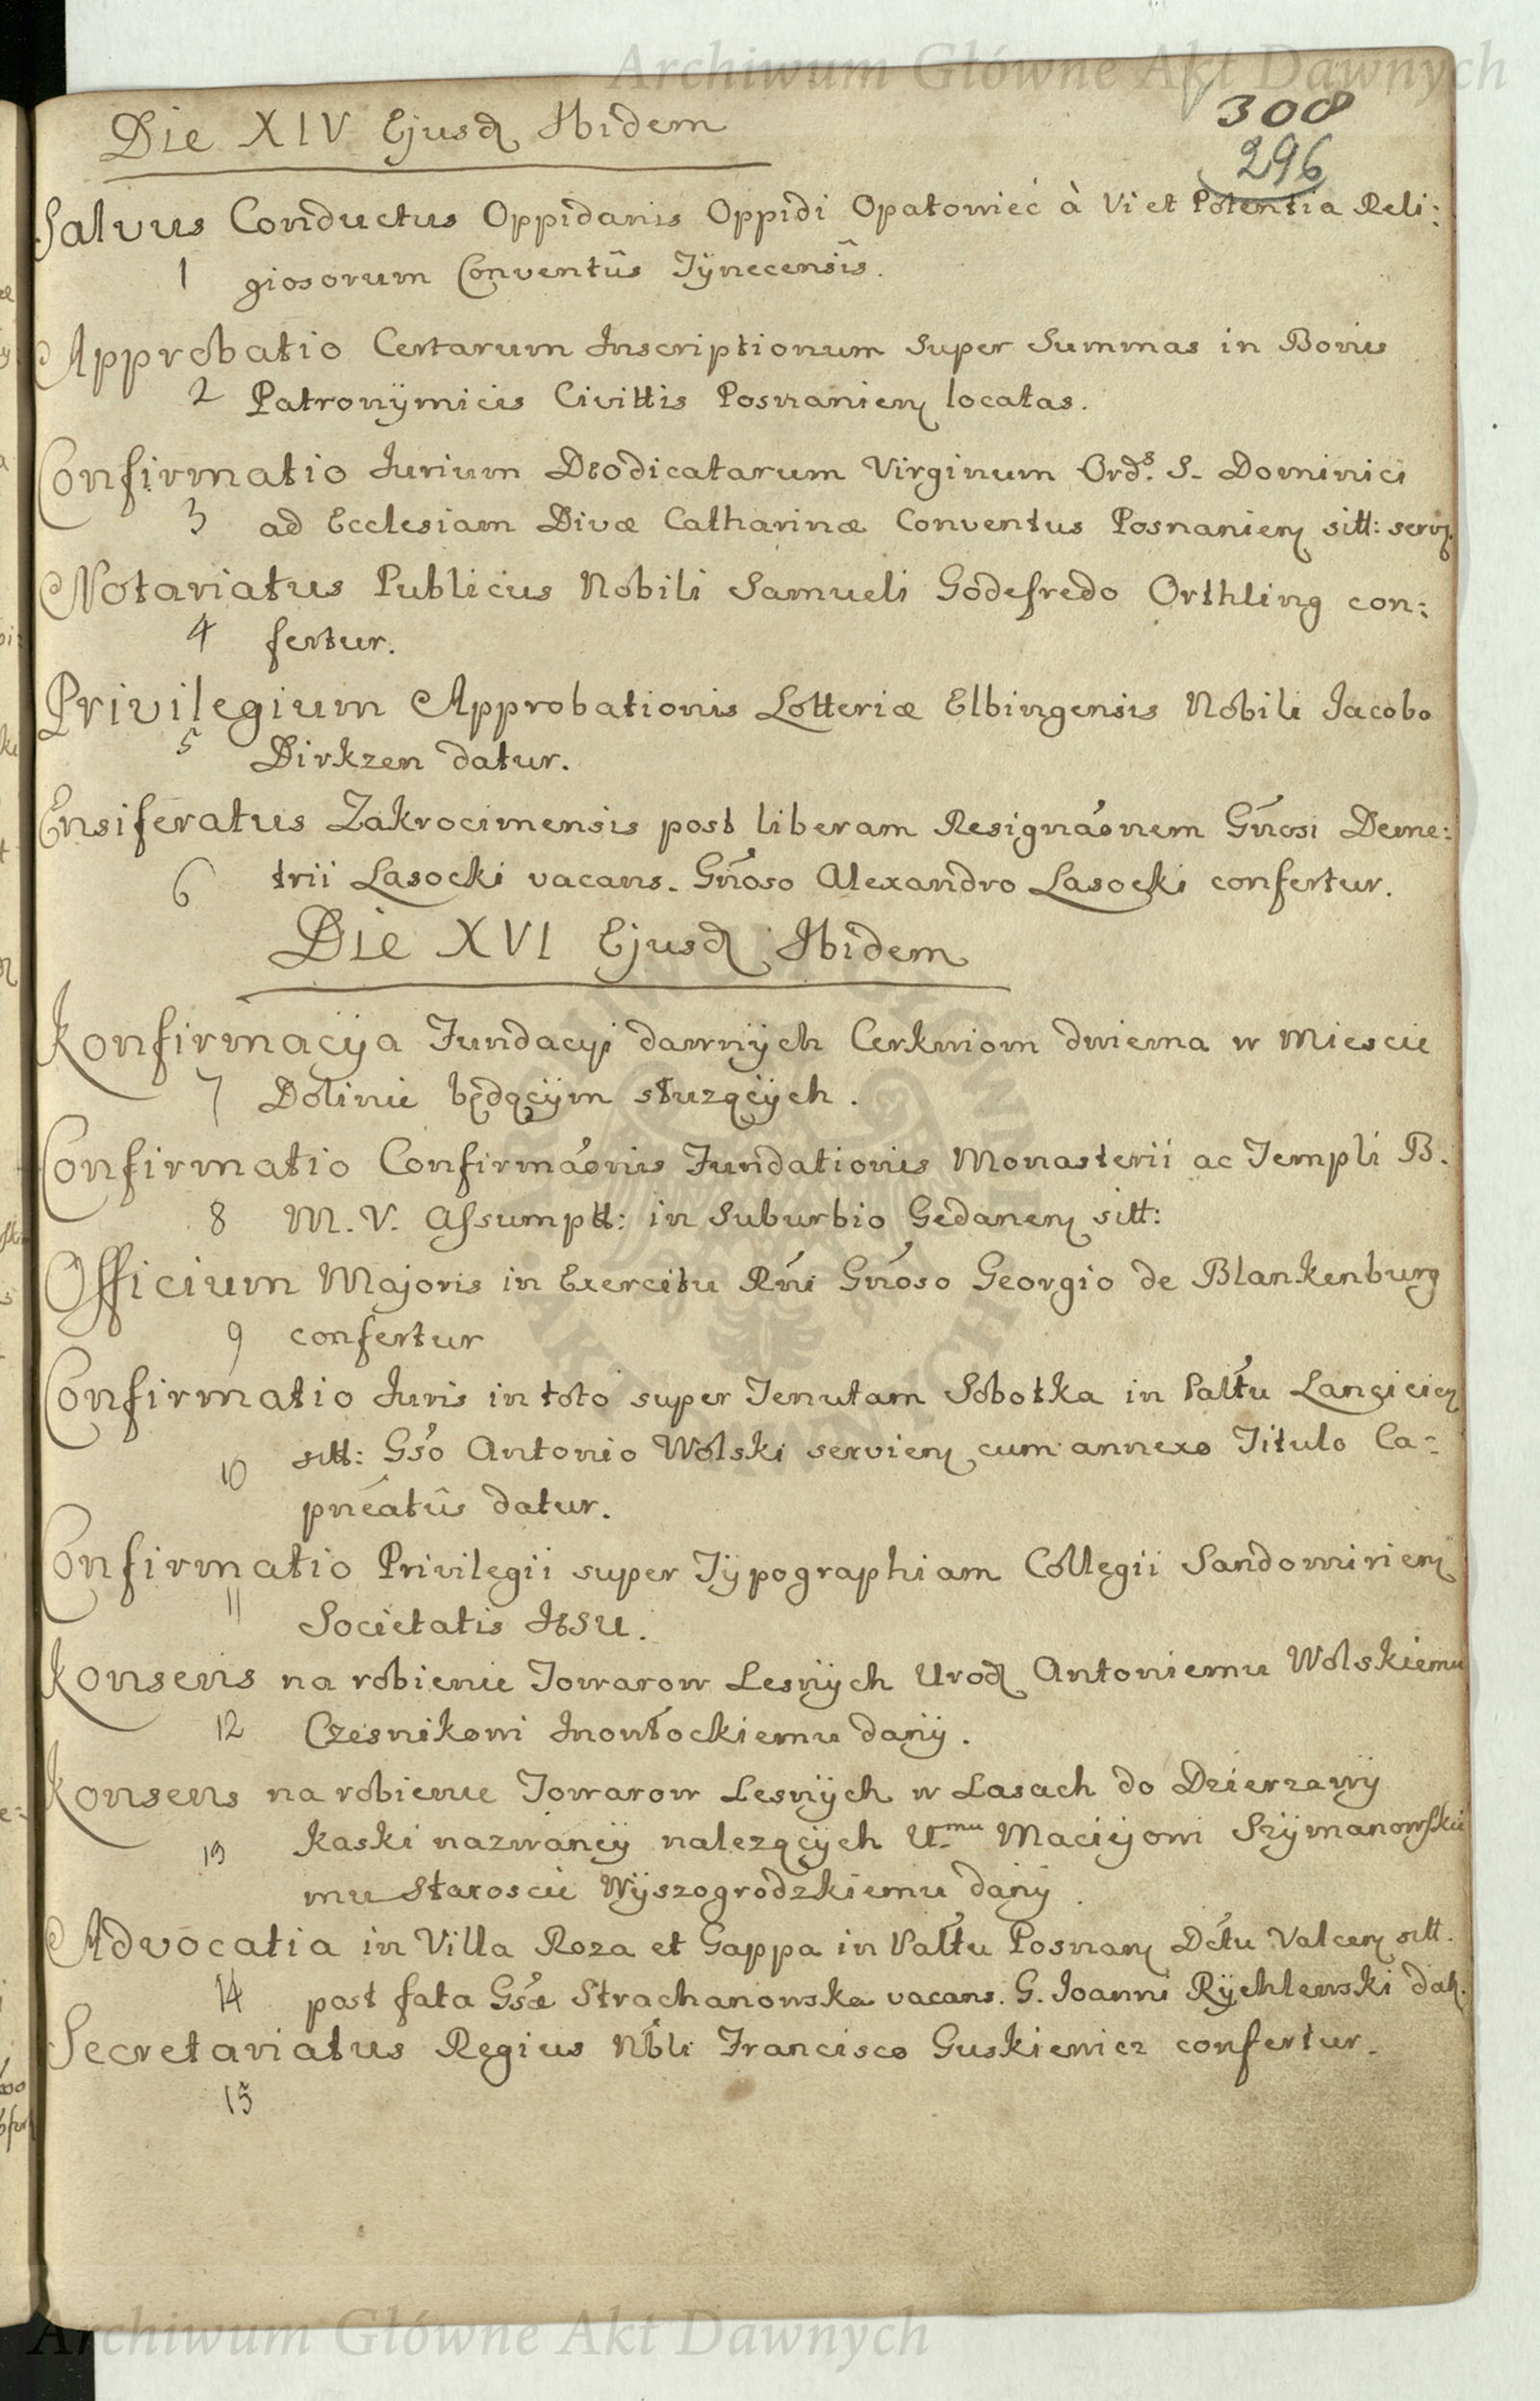 Archiwum Główne Akt Dawnych
308
296
Die XIV Ejusd Ibidem
Salvus Conductus Oppidanis Oppidi Opatowieć à Vi et Potentia Reli:
1 giosorum Conventûs Tÿnecensîs.
Approbatio Certarum Inscriptionum super Summas in Bonis
2 Patronÿmicis Civittis Posnanien locatas.
Confirmatio Jurium Deodicatarum Virginum Ord.s S. Dominici
3 ad Ecclesiam Divæ Catharinæ Conventus Posnanien sitt: serv.
Notariatus Publicus Nobili Samueli Godefredo Orthling con:
4 fertur.
Privilegium Approbationis Lotteriæ Elbingensis Nobili Jacobo
5 Dirkzen datur.
Ensiferatus Zakrocimensis post liberam Resignaonem Gnosi Deme:
6 trii Lasocki vacans. Gnoso Alexandro Lasocki confertur.
Die XVI Ejusd Ibidem
Konfirmacÿa Fundacyi dawnÿch Cerkwiom dwiema w Miescie
7 Dolinie będącÿm służącÿch.
Confirmatio Confirmaonis Fundationis Monasterii ac Templi B.
8 M. V. Assumptt: in Suburbio Gedanen sitt:
Officium Majoris in Exercitu Rni Gnoso Georgio de Blankenburg
9 confertur
Confirmatio Juris in toto super Tenutam Sobotka in Paltu Lancicien
10 sitt: Gso Antonio Wolski servien cum annexo Titulo Ca-
pneatûs datur.
Confirmatio Privilegii super Tÿpographiam Collegii Sandomirien
11 Societatis JESU.
Konsens na robienie Towarow Lesnÿch Urod Antoniemu Wolskiemu
12 Czesnikowi Inowłockiemu danÿ.
Konsens na robienie Towarow Lesnÿch w Lasach do Dzierzawÿ
13 Kaski nazwaneÿ nalezącÿch U.mu Maciÿowi Szÿmanowskie
mu Staroscie Wÿszogrodzkiemu danÿ.
Advocatia in Villa Roza et Gappa in Paltu Posnan Dctu Valcen sitt.
14 post fata Gsæ Strachanowska vacans. G. Joanni Rÿchlewski dat.
Secretariatus Regius Nbli Francisco Guskiewicz confertur.
15
Archiwum Główne Akt Dawnych